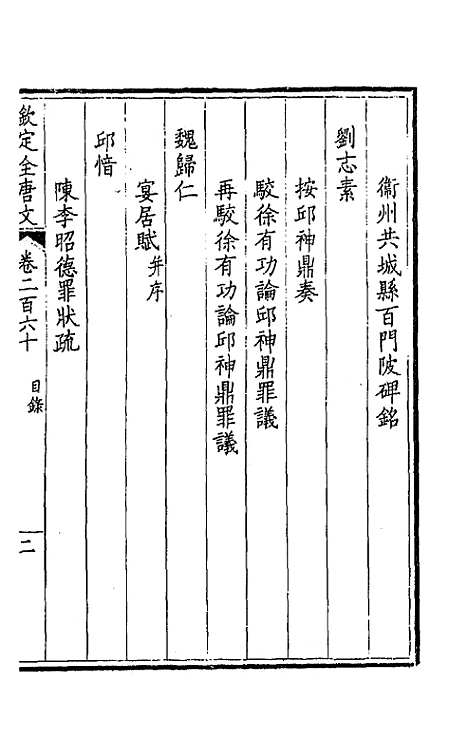 衞州共城縣百門陂碑銘
劉志素
按邱神鼎奏
駮徐有功論邱神鼎罪議
再駮徐有功論邱神鼎罪議
魏歸仁
宴居賦并序
邱愔
陳李昭德罪狀疏
欽定全唐文 卷二百六十 目錄 二